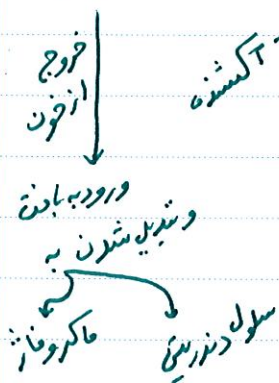 خروج
از خون
ورود به بافت
و تبدیل شدن به
ماکروفاژ
سلول دندریتی